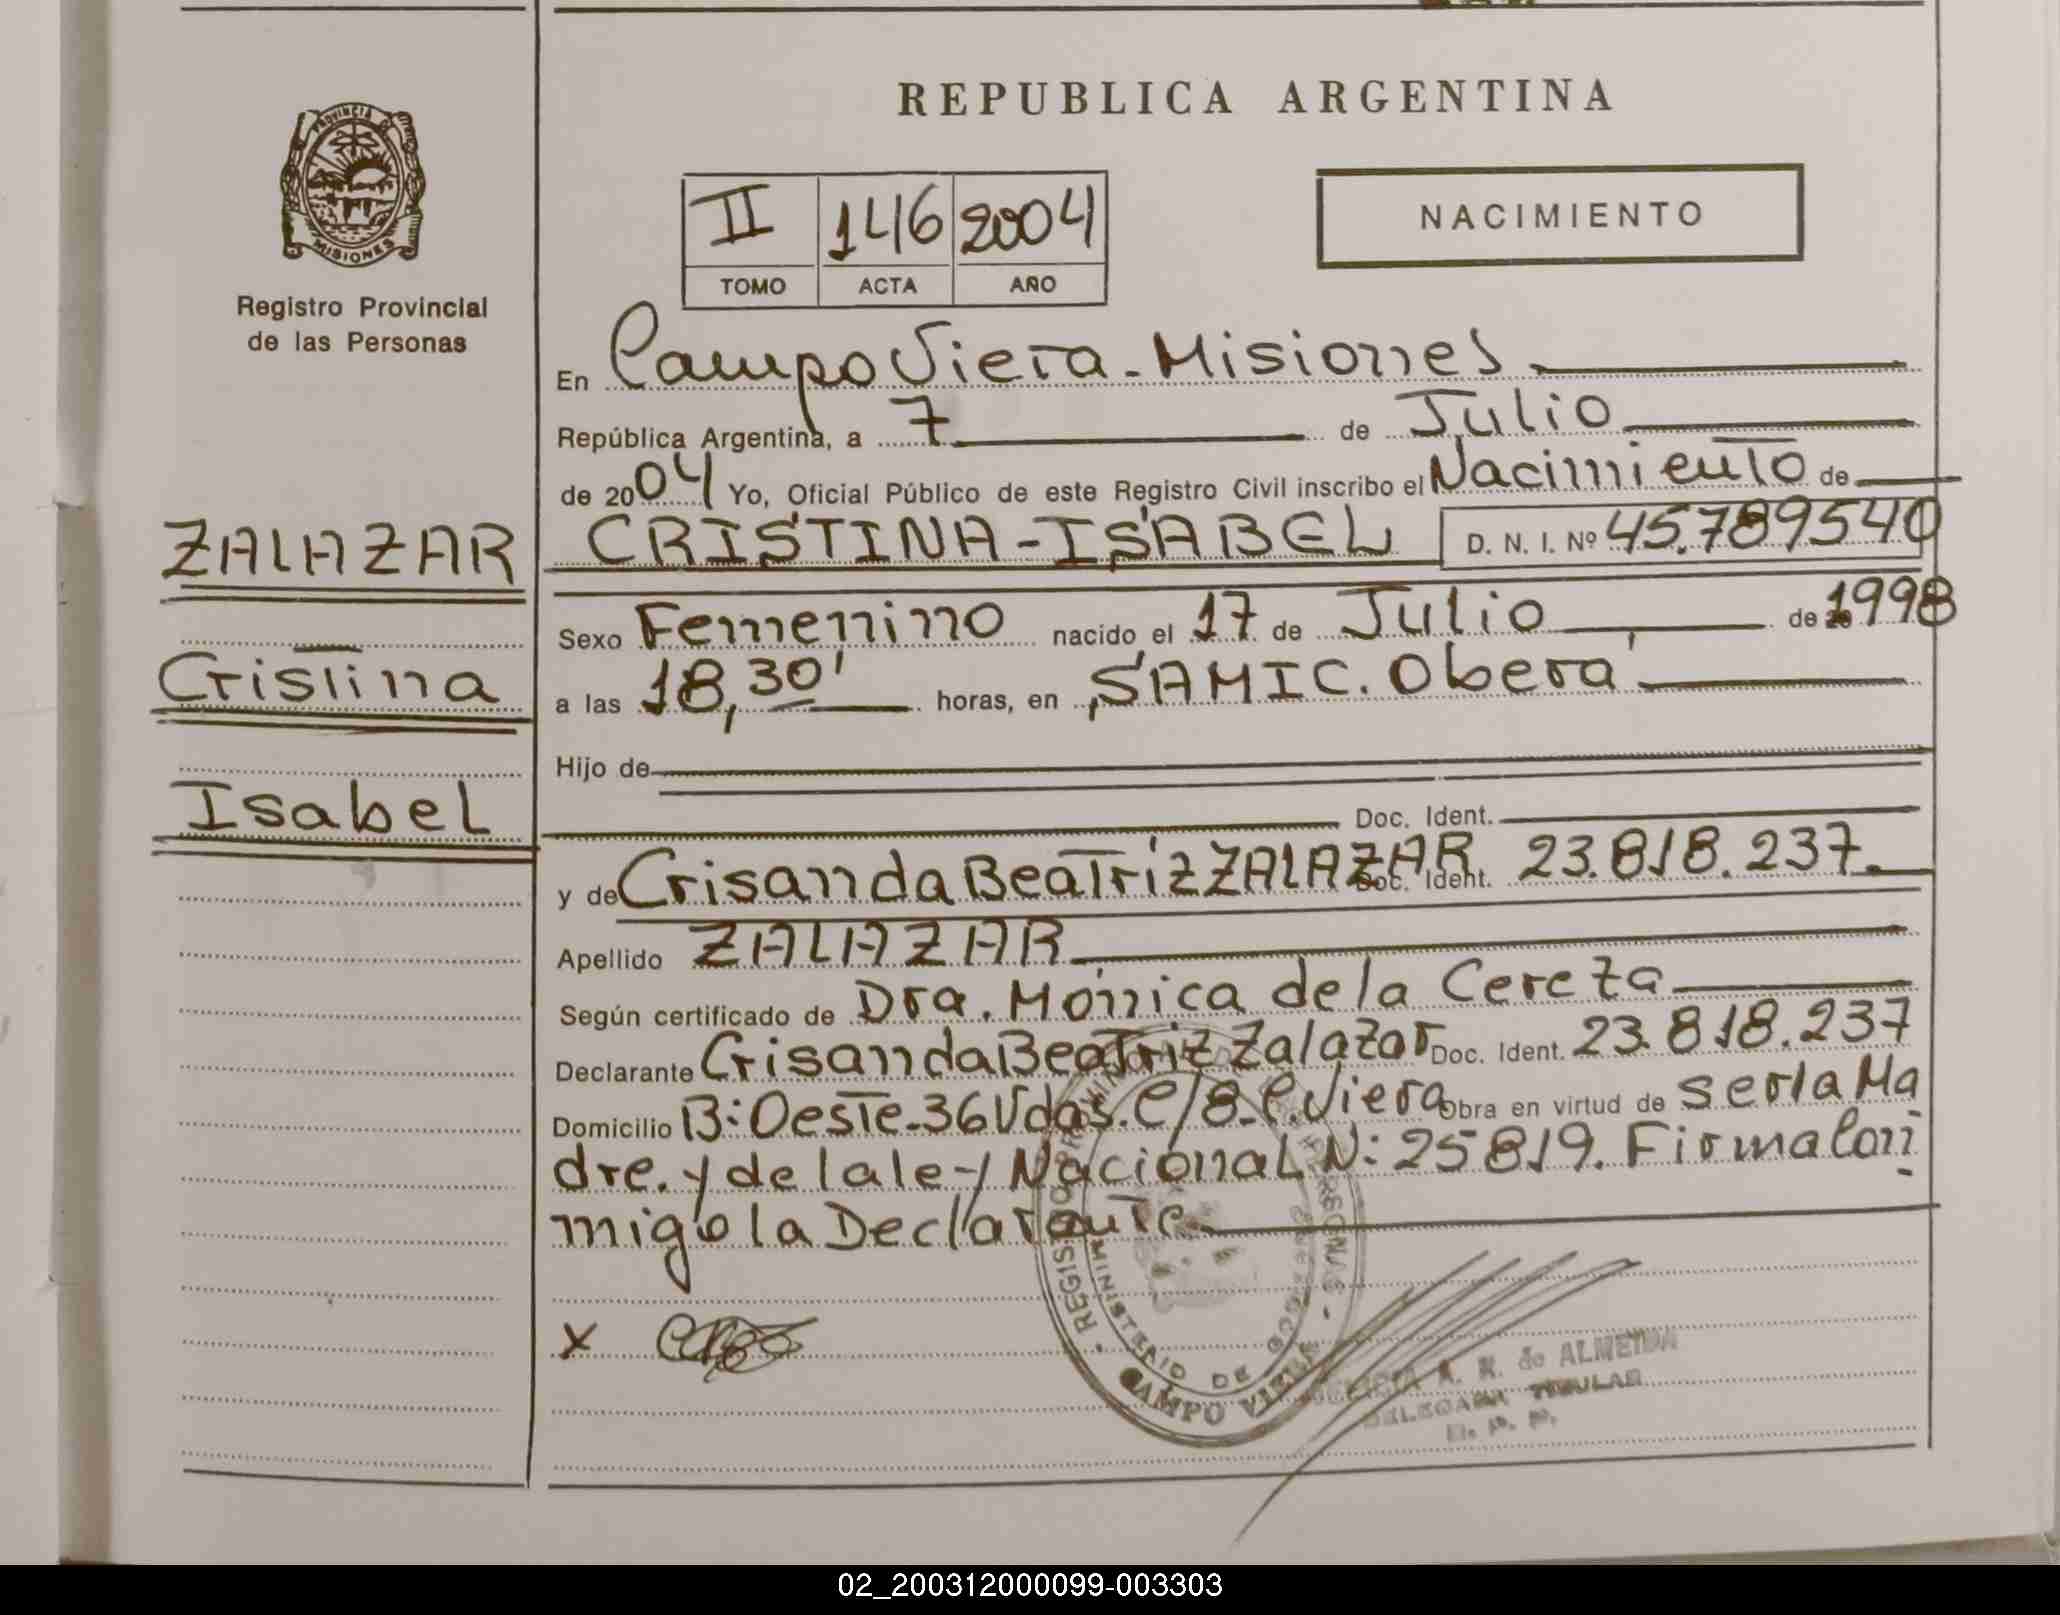 REPUBLICA ARGENTINA
PROVINCIA DE
MISIONES
Registro Provincial
de las Personas
II 146 2004
TOMO ACTA AÑO
NACIMIENTO
En Campo Viera - Misiones
República Argentina, a 7 de Julio
de 2004 Yo, Oficial Público de este Registro Civil inscribo el Nacimiento de
ZALAZAR
CRISTINA-ISABEL D. N. I. Nº 45.789540
Sexo Femenino nacido el 17 de Julio de 1998
Cristina
a las 18,30' horas, en SAMIC. Oberá
Hijo de
Isabel
Doc. Ident.
y de Crisanda Beatriz ZALAZAR Doc. Ident. 23.818.237.
Apellido ZALAZAR
Según certificado de Dra. Mónica de la Cereza
Declarante Crisanda Beatriz Zalazar Doc. Ident. 23.818.237
Domicilio B: Oeste-36 Vdas. C/8-C. Viera Obra en virtud de ser la Ma
dre. y de la ley Nacional N: 25819. Firma Con
migo la Declarante
x
REGISTRO PROVINCIAL DE LAS PERSONAS
MINISTERIO DE GOB
CAMPO VIERA
A. R. de ALMEIDA
DELEGADA TITULAR
02_200312000099-003303